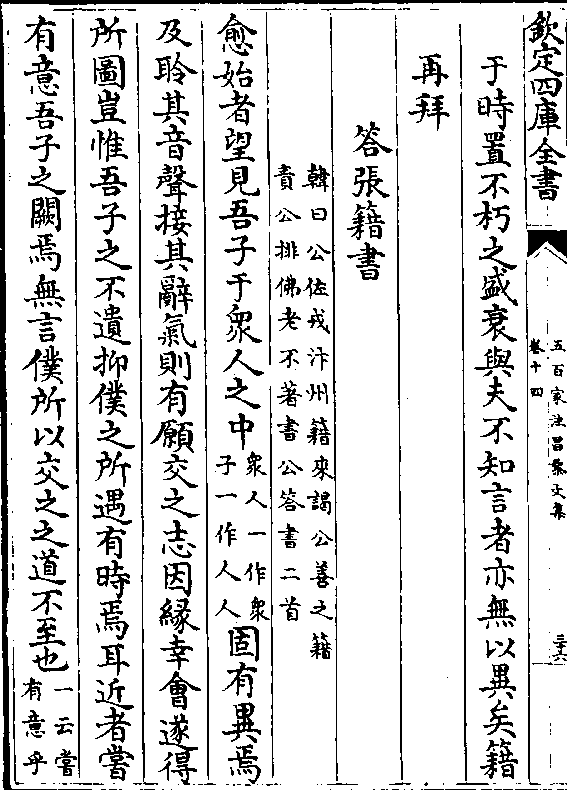 欽定四庫全書
五百家注昌黎文集
卷十四
三十六
于時置不朽之盛衰與夫不知言者亦無以異矣籍
再拜
答張籍書
韓曰公佐戎汴州籍來謁公善之籍
責公排佛老不著書公答書二首
愈始者望見吾子于衆人之中
衆人一作衆
子一作人人
固有異焉
及聆其音聲接其辭氣則有願交之志因緣幸會遂得
所圖豈惟吾子之不遺抑僕之所遇有時焉耳近者嘗
有意吾子之闕焉無言僕所以交之之道不至也
一云嘗
有意乎